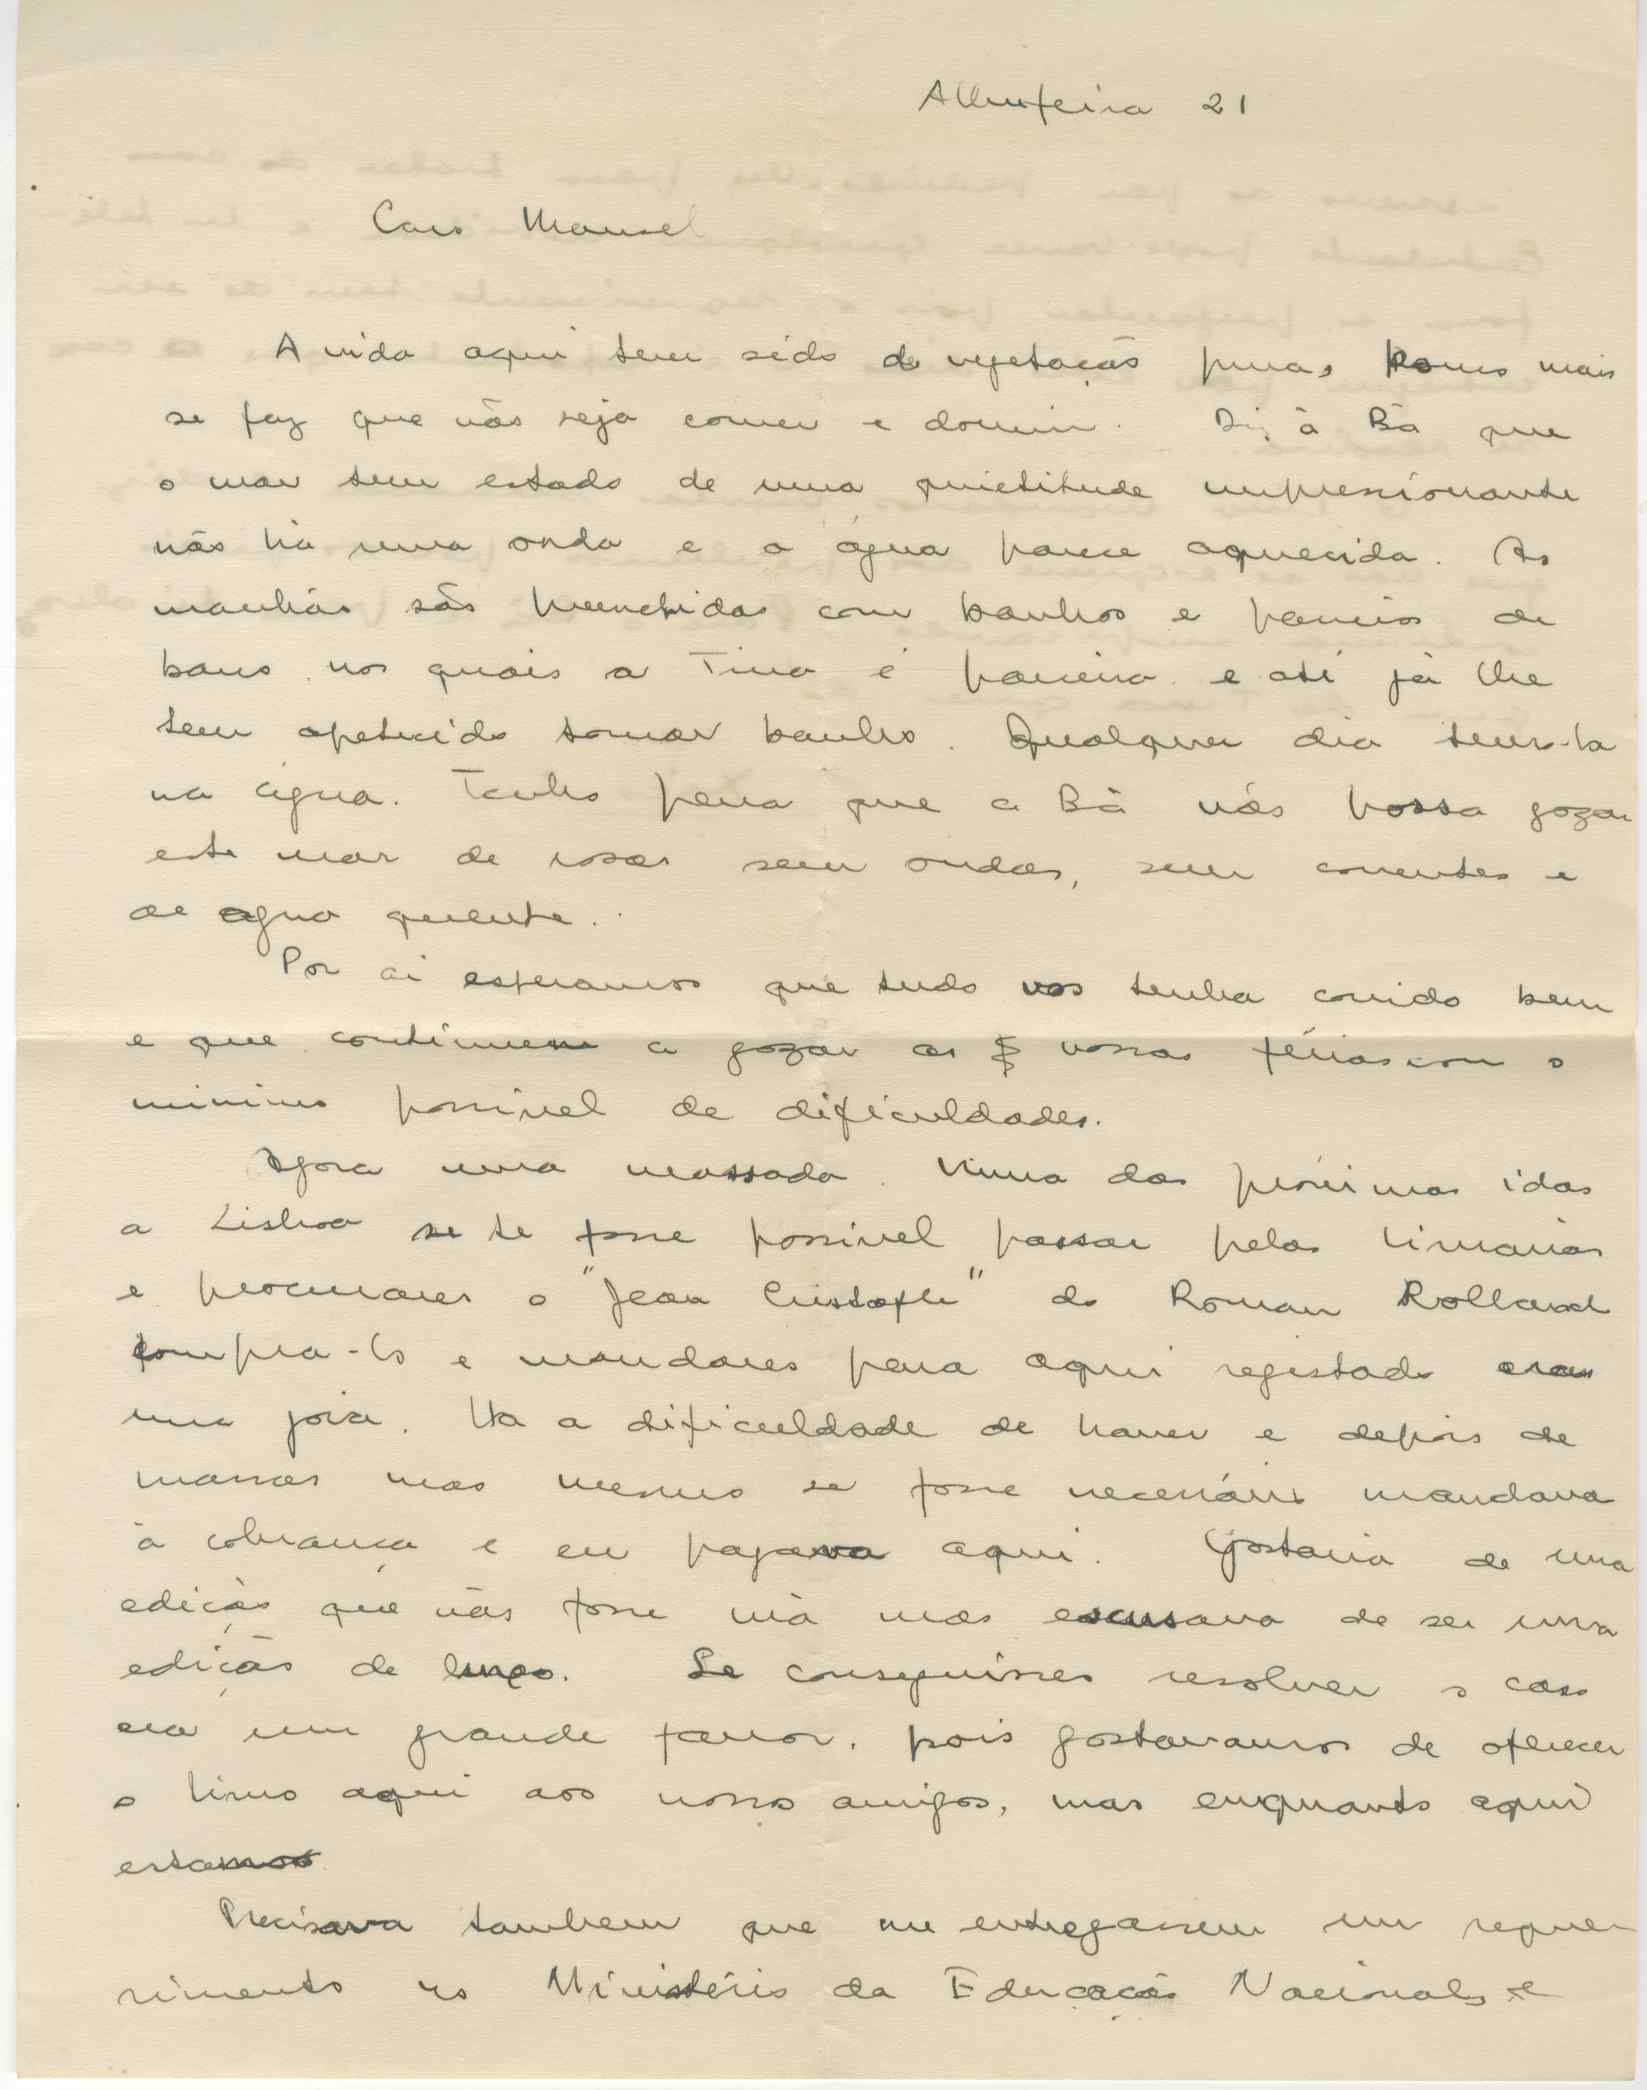 Albufeira 21
Caro Manuel
A vida aqui tem sido de vegetação pura, pouco mais
se faz que não seja comer e dormir. Diz à Bá que
o mar tem estado de uma quietitude impressionante
não há uma onda e a água parece aquecida. As
manhãs são preenchidas com banhos e passeios de
barco nos quais a Tina é parceira e até já lhe
tem apetecido tomar banho. Qualquer dia temo-la
na água. Tenho pena que a Bá não possa gozar
este mar de rosas sem ondas, sem correntes e
de agua quente.
Por ai esperamos que tudo vos tenha corrido bem
e que continuem a gozar as vossas férias com o
minimo possivel de dificuldades.
Agora uma massada. Numa das próximas idas
a Lisboa se te fosse possivel passar pelas livrarias
e procurares o "Jean Cristophe" do Roman Rolland
compra-lo e mandares para aqui registado eras
uma joia. Ha a dificuldade de haver e depois de
massas mas mesmo se fosse necessário mandava
à cobrança e eu pagava aqui. Gostaria de uma
edição que não fosse má mas escusava de ser uma
edição de luxo. Se conseguisses resolver o caso
era um grande favor, pois gostavamos de oferecer
o livro aqui aos nossos amigos, mas enquanto aqui
estamos
Precisava tambem que me entregassem um reque-
rimento no Ministério da Educação Nacional e